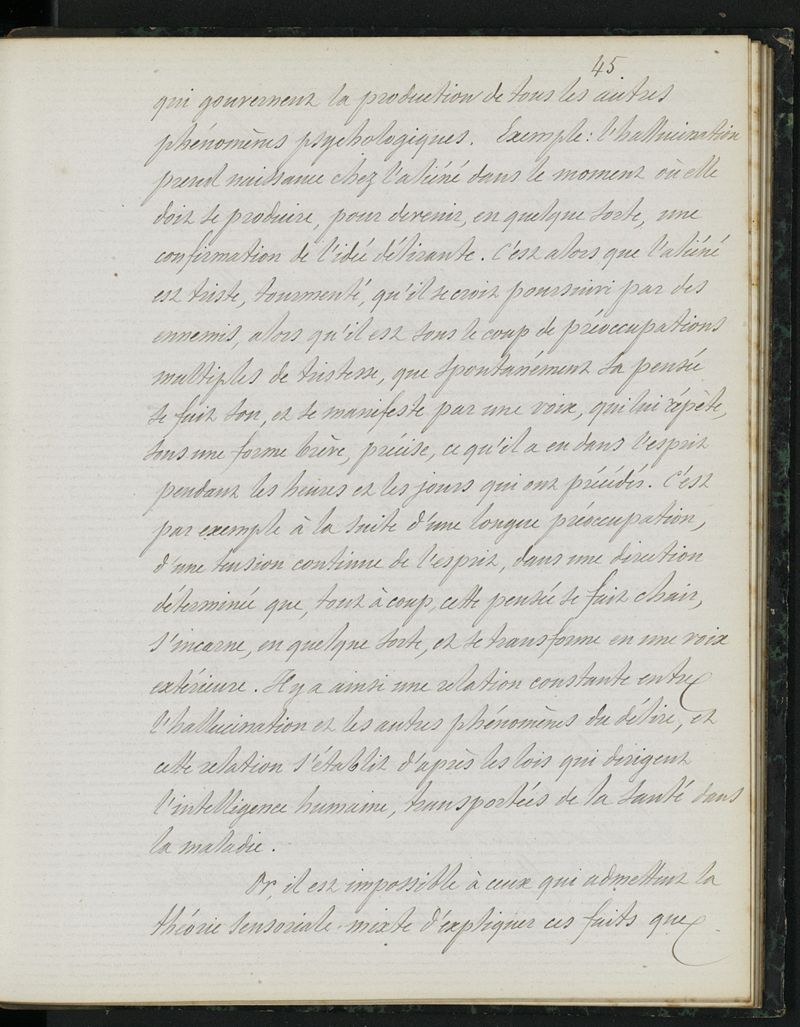 45
qui gouvernent la production de tous les autres
phénomènes psychologiques. Exemple : l'hallucination
prend naissance chez l'aliéné dans le moment où elle
doit se produire, pour devenir, en quelque sorte, une
confirmation de l'idée délirante. C'est alors que l'aliéné
est triste, tourmenté, qu'il se croit poursuivi par des
ennemis, alors qu'il est sous le coup de préoccupations
multiples de tristesse, que spontanément sa pensée
se fait son, et se manifeste par une voix, qui lui répète,
sous une forme brève, précise, ce qu'il a eu dans l'esprit
pendant les heures et les jours qui ont précédés. C'est
par exemple à la suite d'une longue préoccupation,
d'une tension continue de l'esprit, dans une direction
déterminée que, tout à coup, cette pensée se fait chair,
s'incarne, en quelque sorte, et se transforme en une voix
extérieure. Il y a ainsi une relation constante entre
l'hallucination et les autres phénomènes du délire, et
cette relation s'établit d'après les lois qui dirigent
l'intelligence humaine, transportées de la santé dans
la maladie.
Or, il est impossible à ceux qui admettent la
théorie sensoriale-mixte d'expliquer ces faits que